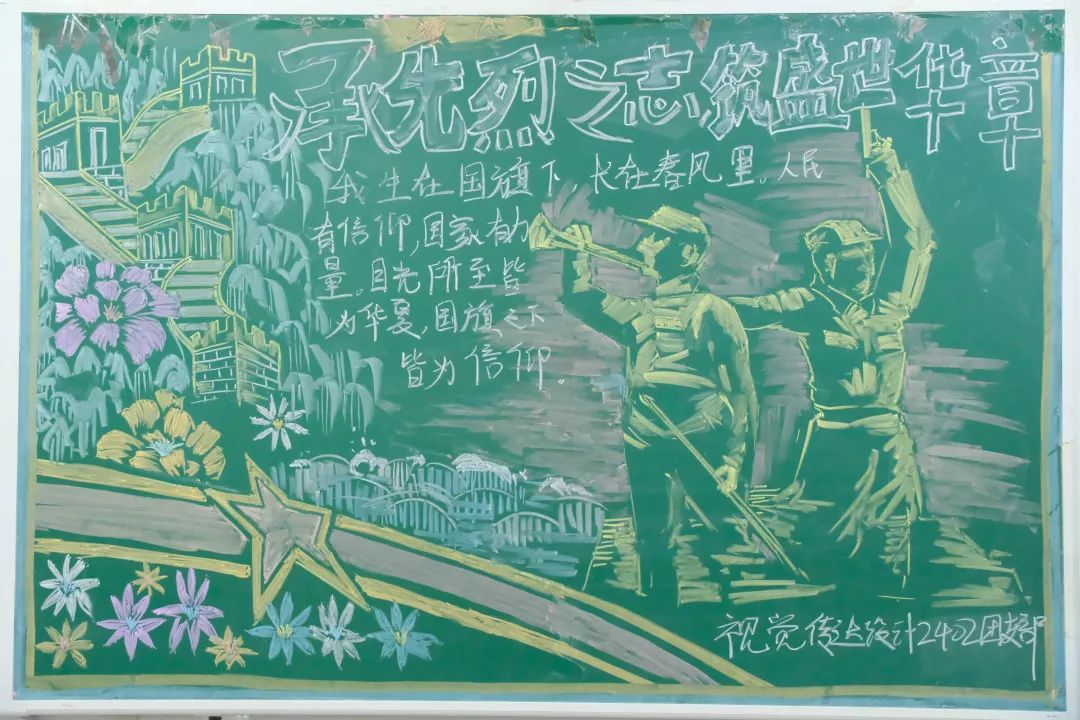 承先烈之志筑盛世华章
我生在国旗下 长在春风里。人民
有信仰,国家有力
量。目光所至皆
为华夏,国旗之下
皆为信仰。
视觉传达设计2402团支部